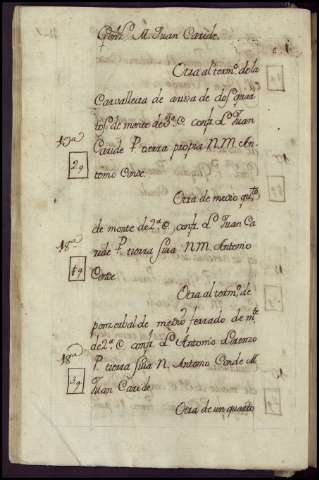 Poni.te M. Juan Caride.
Otra al term.º de la
Carvalleira de arriva de dos quar
tos de monte de 3ª C. conf. L. Juan
17ª
Caride P. tierra propia N. M. An-
2q
tonio Conde
Otra de medio qu.to
de monte de 2ª C. conf. L. Juan Ca
18ª
ride P. tierra suia N. M. Antonio
Conde
Otra al term.º de
de medio ferrado de m.te
de 2ª C. conf. L. Antonio Lorenzo
18ª
P. tierra suia N. Antonio Conde M.
Juan Caride
Otra de un quarto